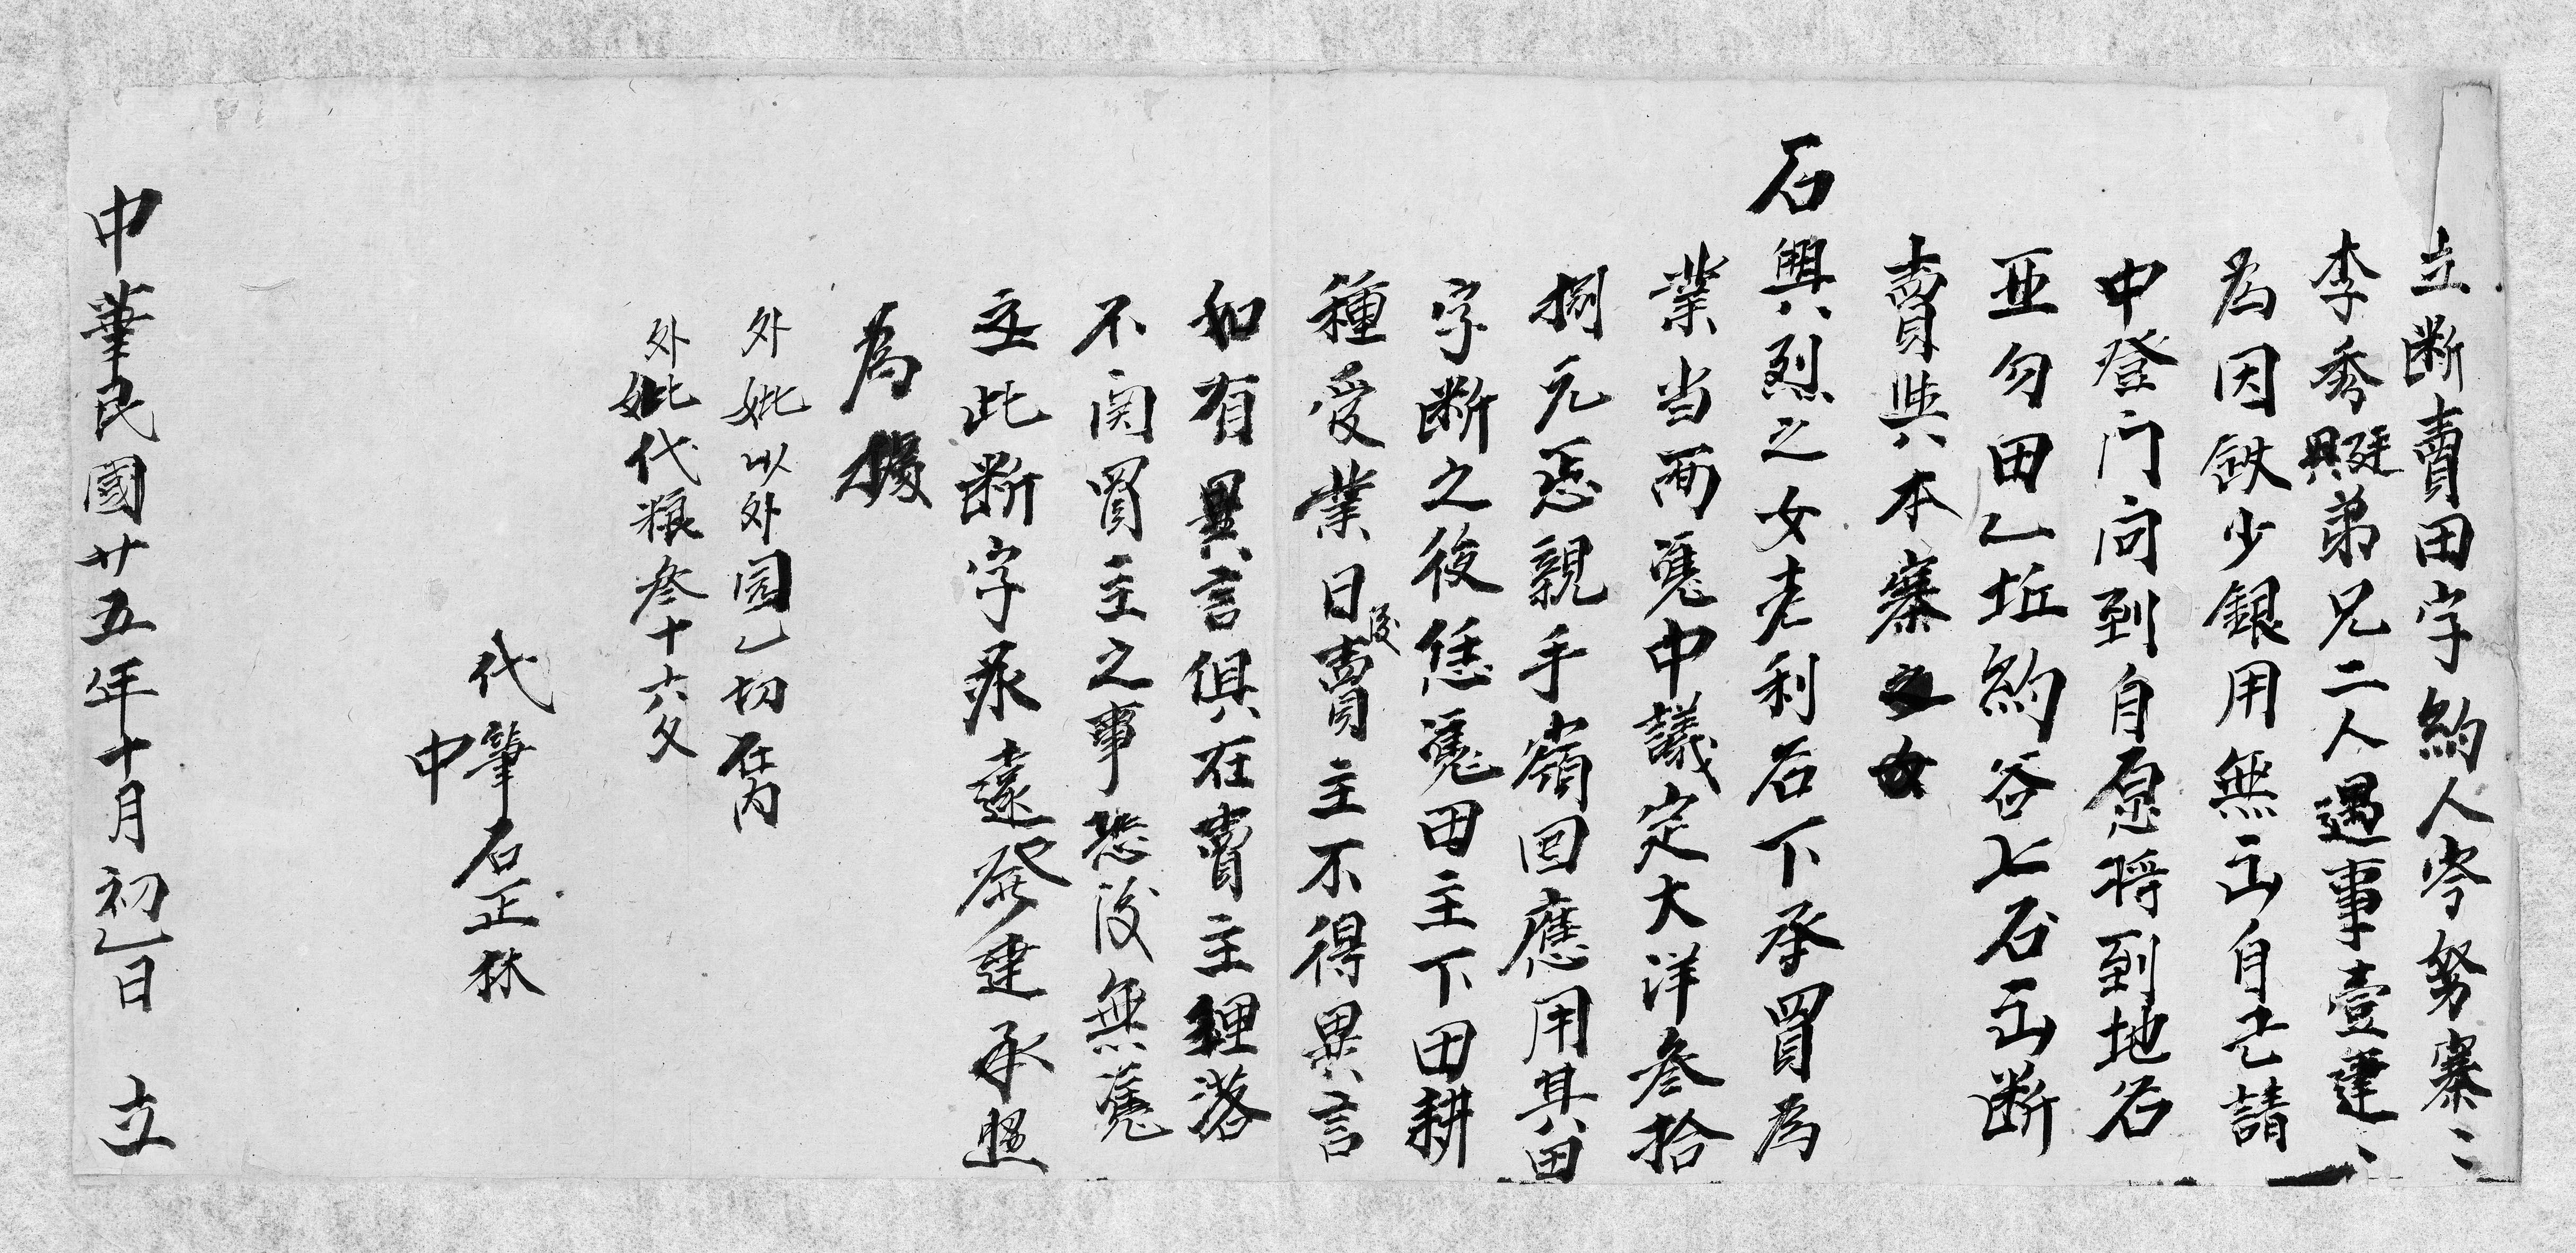 立断賣田字約人岑努寨〻
李秀興廷弟兄二人遇事壹建〻
為因缺少銀用無出自己請
中登门问到自愿将到地名
亚勿田乙坵約谷七石出断
賣與本寨之女
石興烈之女老利名下承買為
業当面憑中議定大洋叁拾
捌元悉親手嶺囬應用其田
字断之後恁憑田主下田耕
種受業日後賣主不得異言
如有異言俱在賣主理落
不関買主之事恐後無憑
立此断字永遠發達承照
為據
外妣以外园乙切在内
外妣代粮叁十六文
代筆石正林
中
中華民國廿五年十月初乙日 立